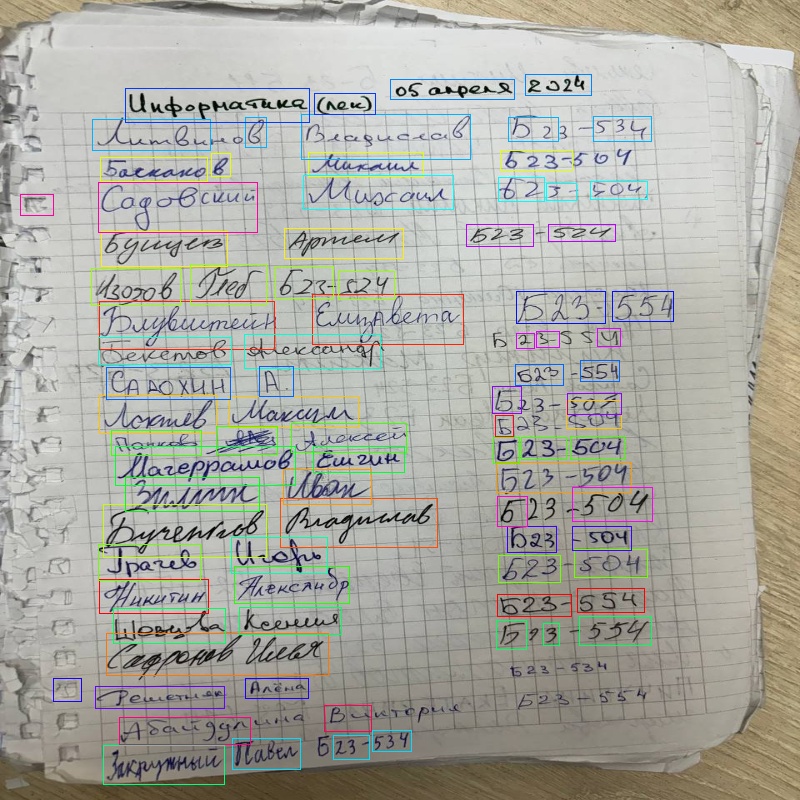 Информатика (лек) 05 апреля 2024
Литвинов Владислав Б23-534
Баскаков Михаил Б23-504
Садовский Михаил Б23-504
Артем Б23-524
Изотов Глеб Б23-524
Блувштейн Елизавета Б23-554
Бекетов Александр Б23-554
Садохин А. Б23-554
Локтев Максим Б23-504
Попков Алексей Б23-504
Магеррамов Ёлгин Б23-504
Зиммин Иван Б23-504
Бученков Владислав Б23-504
Грачев Игорь Б23-504
Никитин Александр Б23-504
Ксения Б23-554
Сафронов Илья Б23-554
Решетняк Алёна Б23-534
Абайдулина Виктория Б23-554
Закружный Павел Б23-534